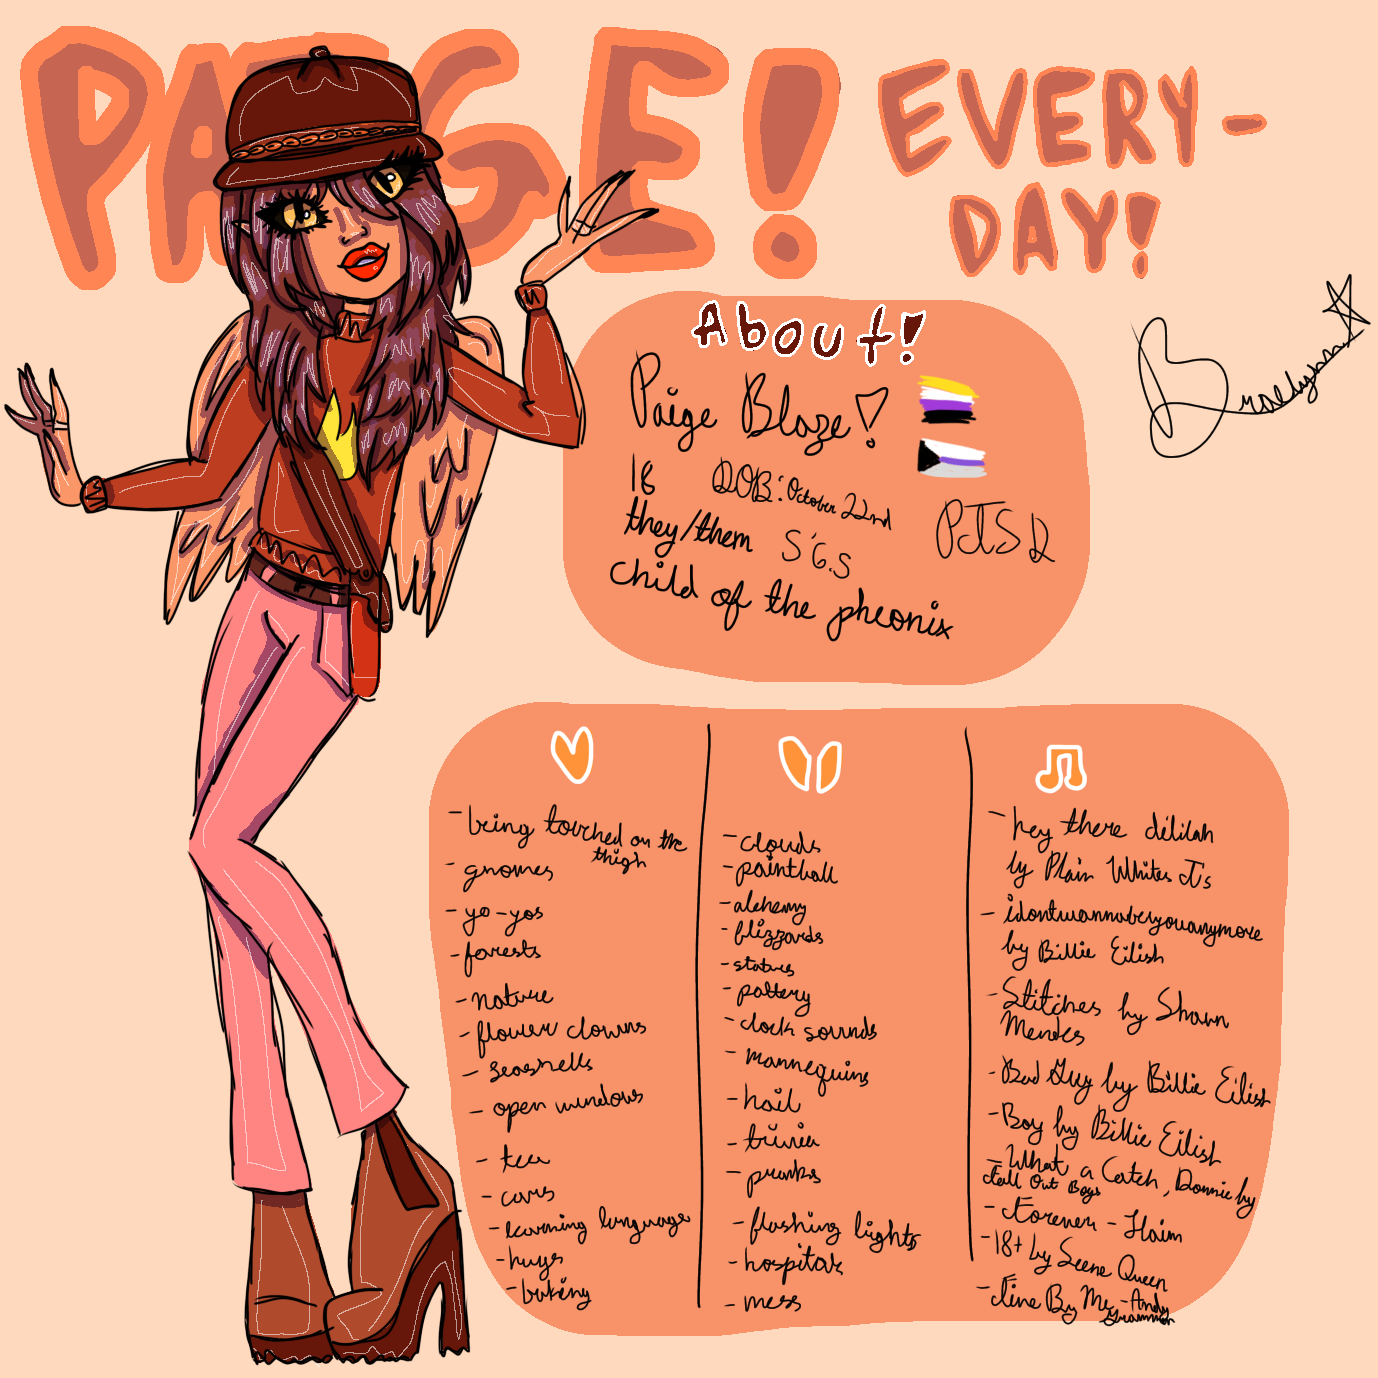 PAIGE! EVERY-
DAY!
Braelynn
About!
Paige Blaze!
18 DOB: October 22nd
they/them 5'6.5 PTSD
child of the pheonix
- being touched on the
thigh
- gnomes
- yo-yos
- forests
- nature
- flower clowns
- seashells
- open windows
- tea
- cars
- learning language
- hugs
- baking
- clouds
- paintball
- alchemy
- blizzards
- statues
- pottery
- clock sounds
- mannequins
- hail
- trivia
- pranks
- flashing lights
- hospitals
- mess
- hey there delilah
by Plain White T's
- idontwannabeyouanymore
by Billie Eilish
- Stitches by Shawn
Mendes
- Bad Guy by Billie Eilish
- Boy by Billie Eilish
- What a Catch, Donnie by
Fall Out Boys
- Forever - Haim
- 18+ by Scene Queen
- Fine By Me - Andy
Grammer